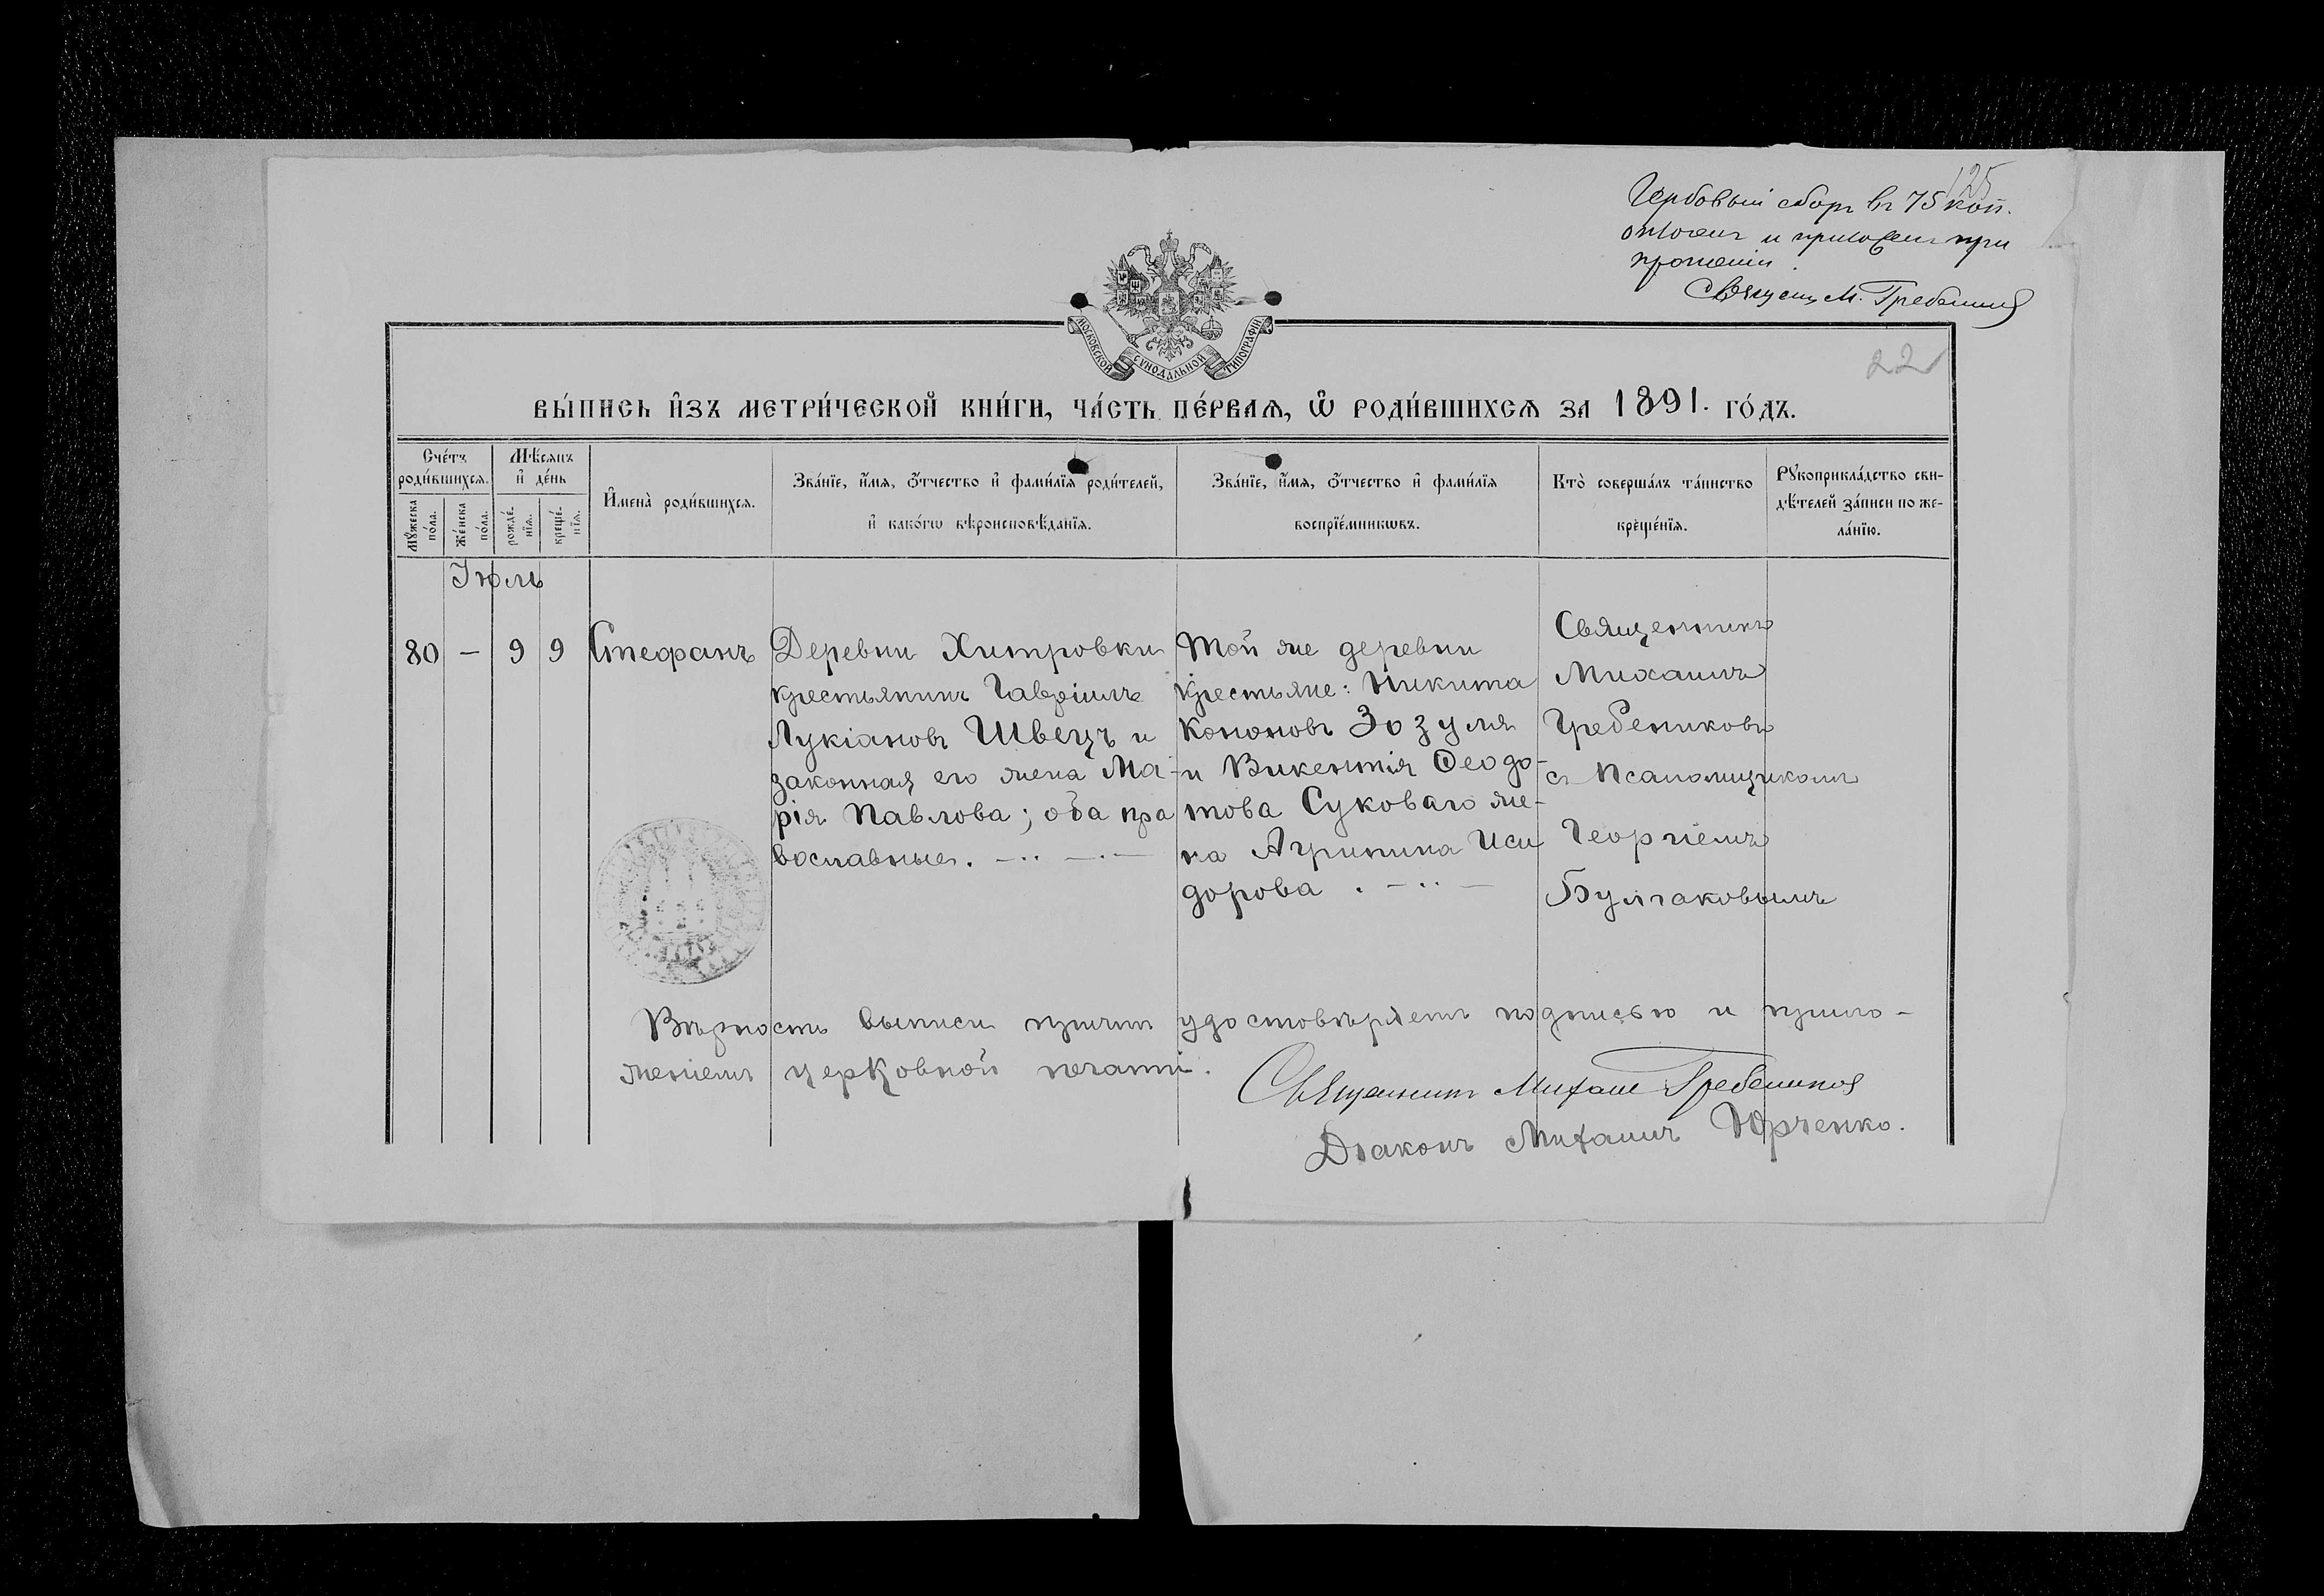 125
Гербовый сборъ въ 75 коп.
оплоченъ и приложенъ при
прошеніи.
Священ. М. Гребениковъ
МОСКОВСКОЙ СѴНОДАЛЬНОЙ ТИПОГРАФІИ
22
ВЫ́ПИСЬ И҆ЗЪ МЕТРИ́ЧЕСКОЙ КНИ́ГИ, ЧА́СТЬ ПЕ́РВАѦ, Ѽ РОДИ́ВШИХСѦ ЗА 1891. ГО́ДЪ.
Сче́тъ роди́вшихсѧ.
Мѹ́жеска по́ла.
Же́нска по́ла.
Мѣ́сяцъ и҆ де́нь
рожде́нїѧ.
креще́нїѧ.
И҆мена̀ роди́вшихсѧ.
Зва́нїе, и҆́мѧ, ѻ҆́тчество и҆ фами́лїѧ роди́телей,
и҆ како́гѡ вѣроисповѣ́данїѧ.
Зва́нїе, и҆́мѧ, ѻ҆́тчество и҆ фами́лїѧ
воспрїе́мникѡвъ.
Кто̀ соверша́лъ та́инство
креще́нїѧ.
Рѹкоприкла́дство сви-
дѣ́телей за́писи по же-
ла́нїю.
Іюль
80 — 9 9
Стефанъ
Деревни Хитровки
крестьянинъ Гавріилъ
Лукіановъ Швецъ и
законная его жена Ма-
рія Павлова; оба пра
вославные.
Той же деревни
крестьяне: Никита
Кононовъ Зозуля
и Викентія Ѳеодо-
това Суковаго же-
на Агрипина Иси
дорова.
Священникъ
Михаилъ
Гребениковъ
съ Псаломщикомъ
Георгіемъ
Булгаковымъ
Вѣрность выписи причтъ удостовѣряетъ подписью и прило-
женіемъ церковной печати.
Священникъ Михаилъ Гребениковъ
Діаконъ Михаилъ Юрченко.